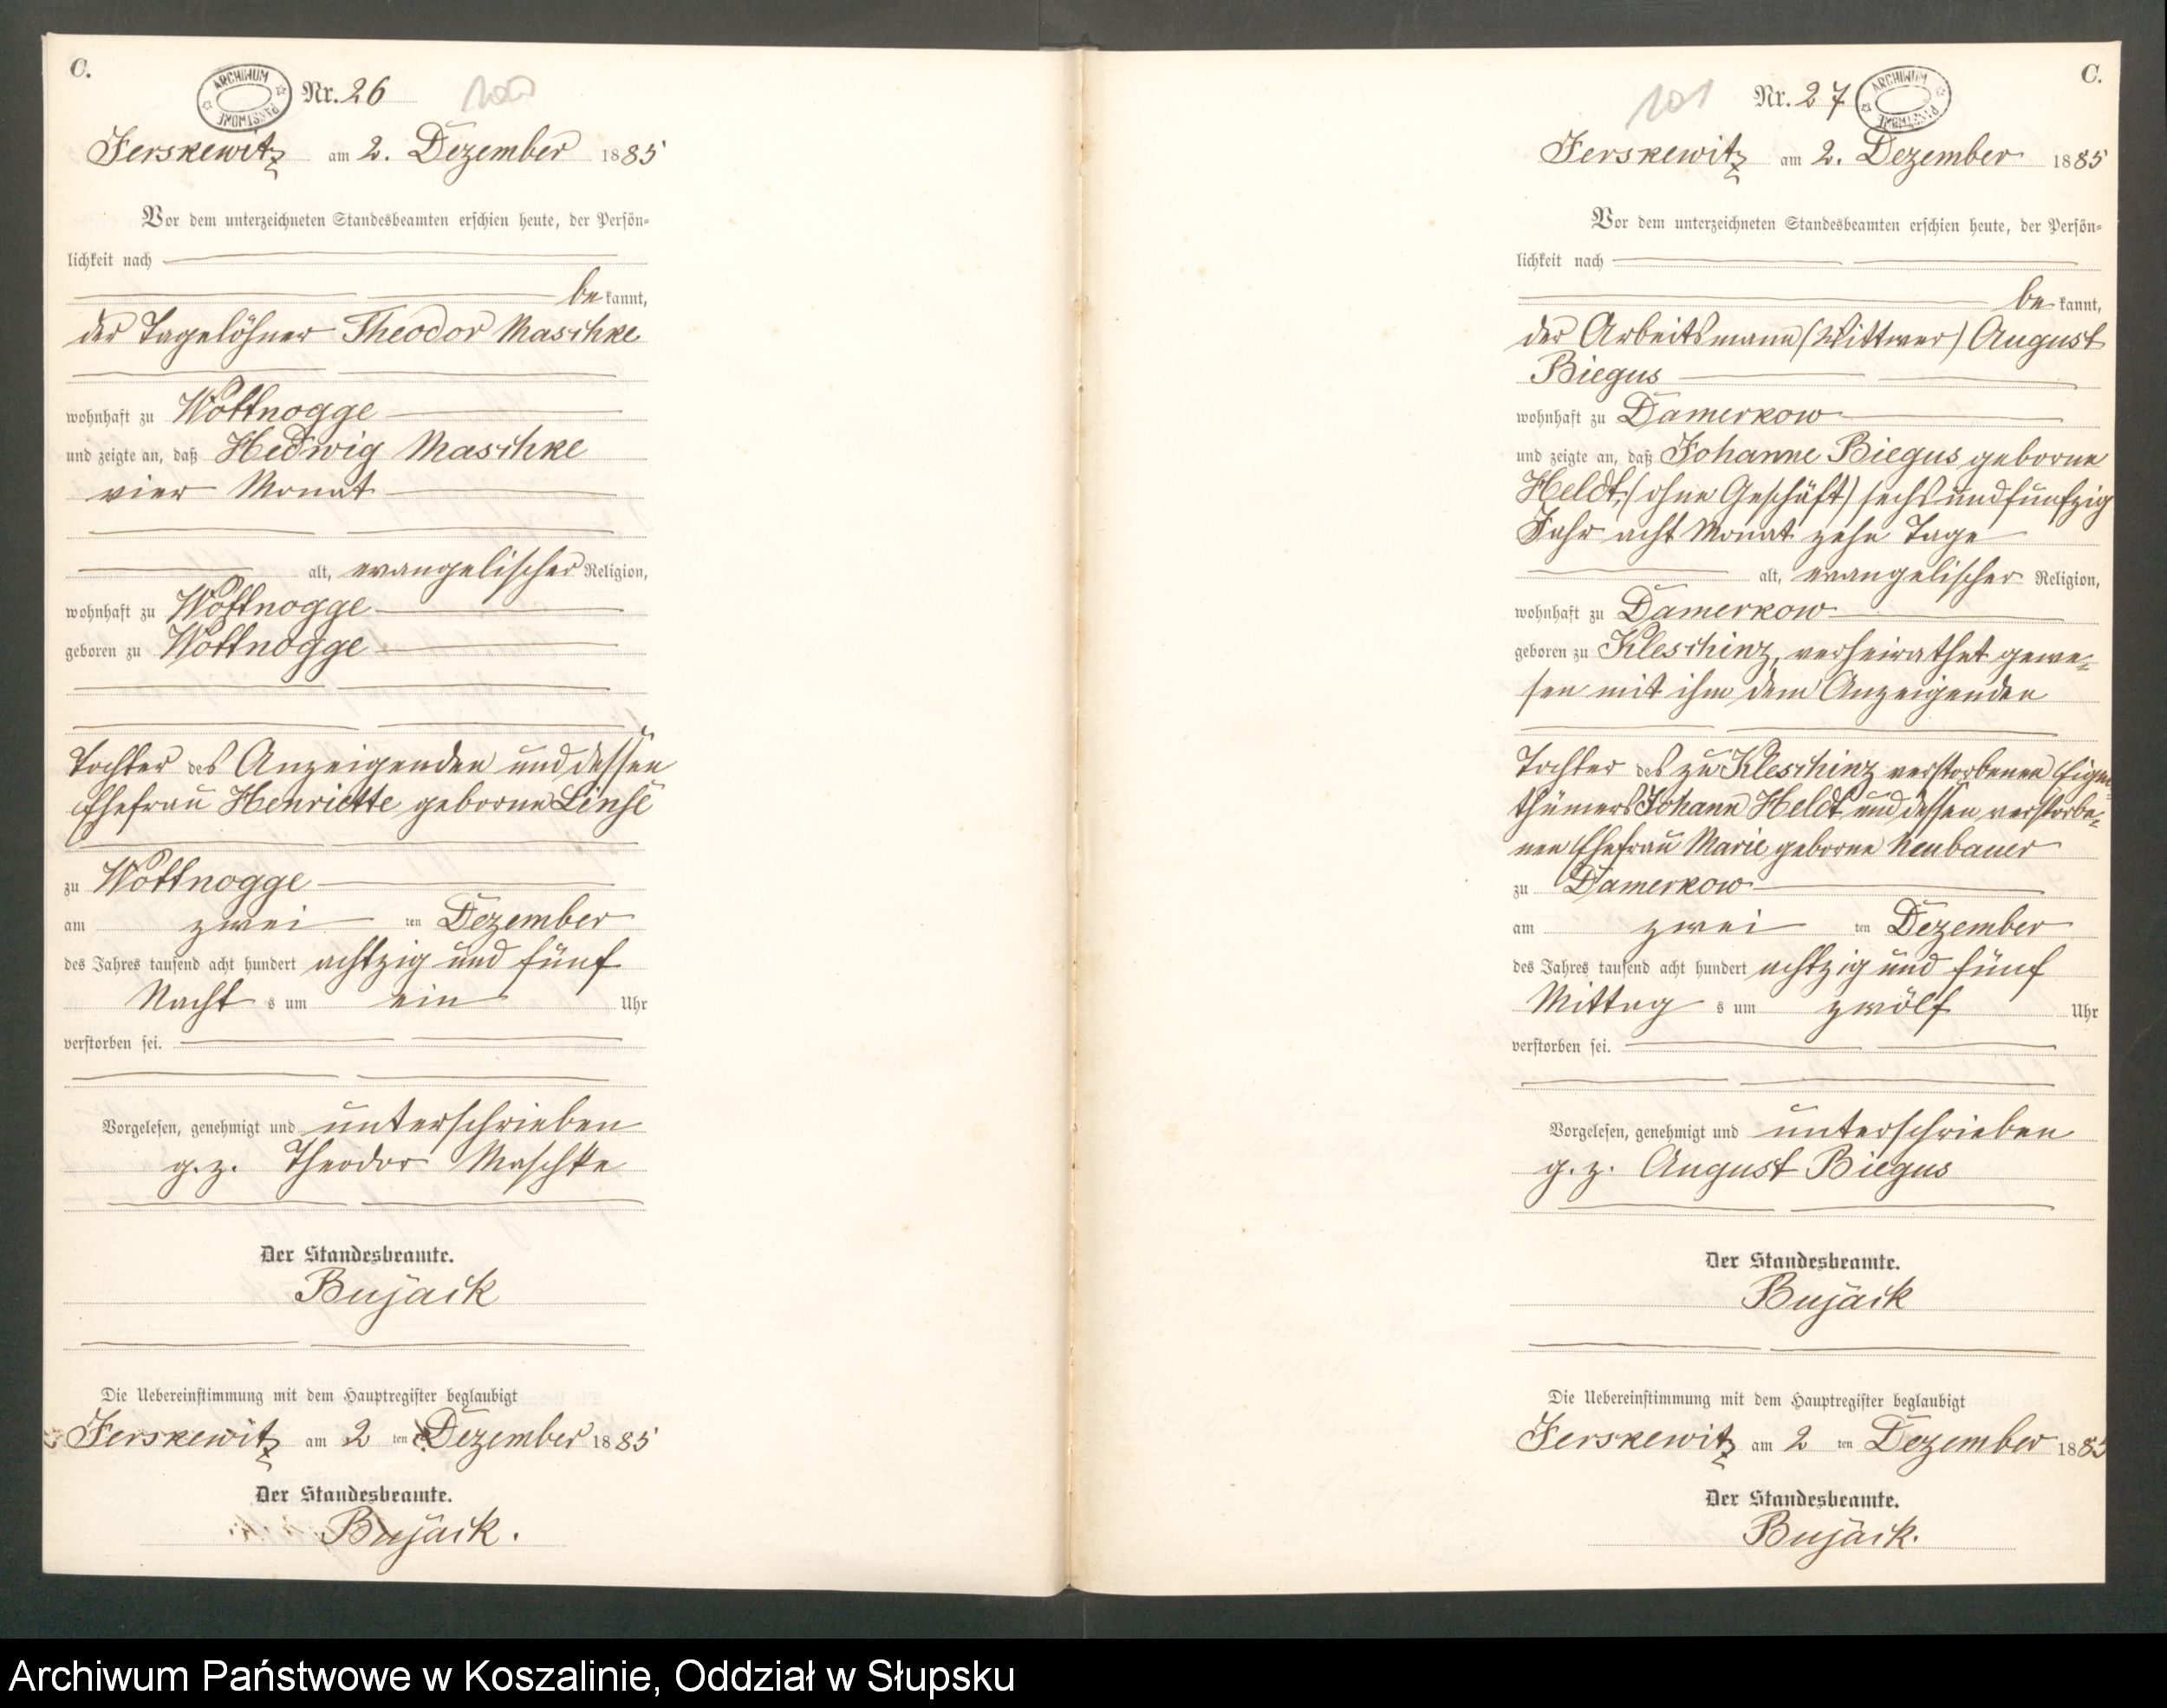 C.
ARCHIWUM PAŃSTWOWE
Nr. 26
100
Jerskewitz am 2. Dezember 1885
Vor dem unterzeichneten Standesbeamten erschien heute, der Persön-
lichkeit nach
be kannt,
der Tagelöhner Theodor Maschke
wohnhaft zu Wottnogge
und zeigte an, daß Hedwig Maschke
vier Monat
alt, evangelischer Religion,
wohnhaft zu Wottnogge
geboren zu Wottnogge
Tochter des Anzeigenden und dessen
Ehefrau Henriette geborne Linse
zu Wottnogge
am zwei ten Dezember
des Jahres tausend acht hundert achtzig und fünf
Nacht s um ein Uhr
verstorben sei.
Vorgelesen, genehmigt und unterschrieben
g. z. Theodor Maschke
Der Standesbeamte.
Bujack
Die Uebereinstimmung mit dem Hauptregister beglaubigt
Jerskewitz am 2 ten Dezember 1885
Der Standesbeamte.
Bujack.
C.
ARCHIWUM PAŃSTWOWE
Nr. 27
101
Jerskewitz am 2. Dezember 1885
Vor dem unterzeichneten Standesbeamten erschien heute, der Persön-
lichkeit nach
be kannt,
der Arbeitsmann (Wittwer) August
Biegus
wohnhaft zu Damerkow
und zeigte an, daß Johanne Biegus geborne
Heldt, (ohne Geschäft) sechs und fünfzig
Jahr acht Monat zehn Tage
alt, evangelischer Religion,
wohnhaft zu Damerkow
geboren zu Kleschinz, verheirathet gewe-
sen mit ihm dem Anzeigenden
Tochter des zu Kleschinz verstorbenen Eigen-
thümers Johann Heldt und dessen verstorbe-
nen Ehefrau Marie geborne Neubauer
zu Damerkow
am zwei ten Dezember
des Jahres tausend acht hundert achtzig und fünf
Mittag s um zwölf Uhr
verstorben sei.
Vorgelesen, genehmigt und unterschrieben
g. z. August Biegus
Der Standesbeamte.
Bujack
Die Uebereinstimmung mit dem Hauptregister beglaubigt
Jerskewitz am 2 ten Dezember 1885
Der Standesbeamte.
Bujack.
Archiwum Państwowe w Koszalinie, Oddział w Słupsku